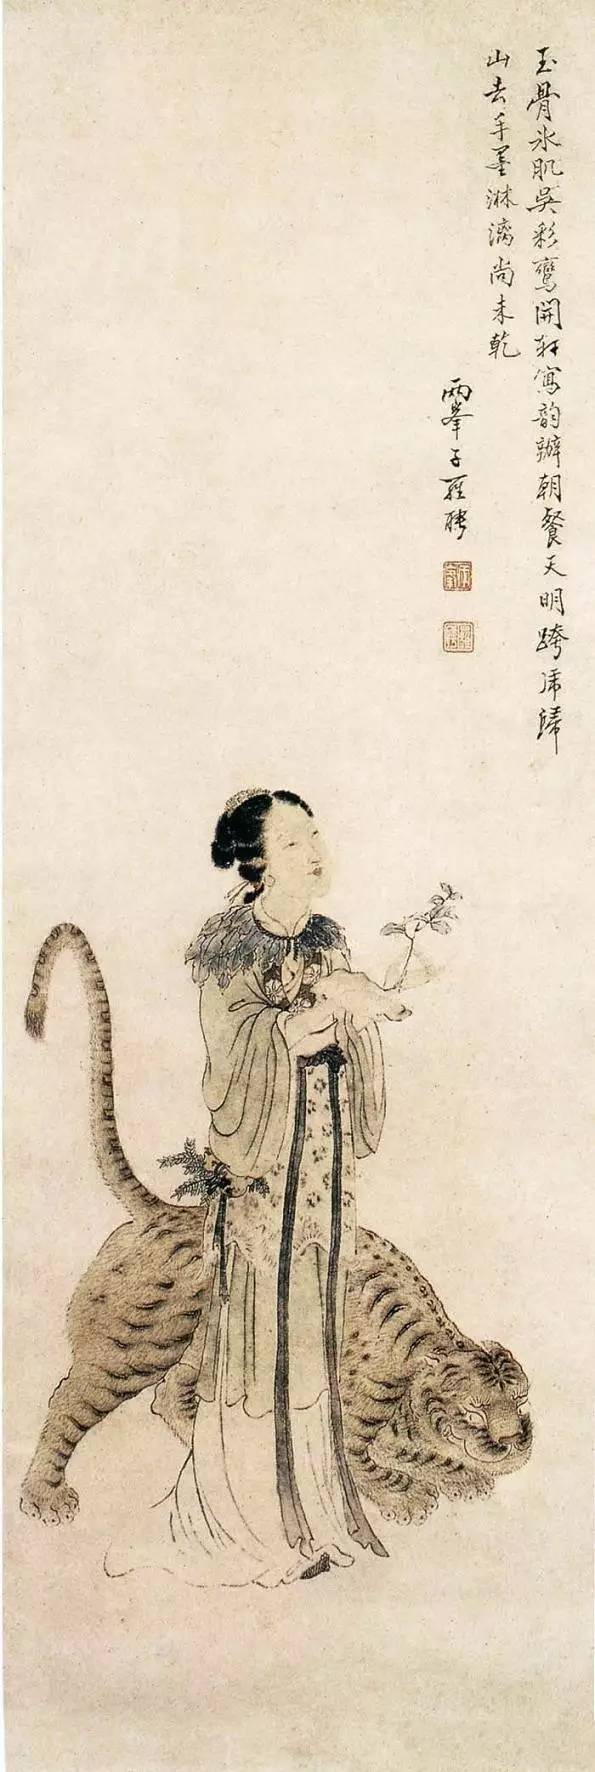 玉骨氷肌吳彩鸞開軒寫韵辦朝餐天明跨虎歸
山去手墨淋漓尚未乾
兩峯子羅聘